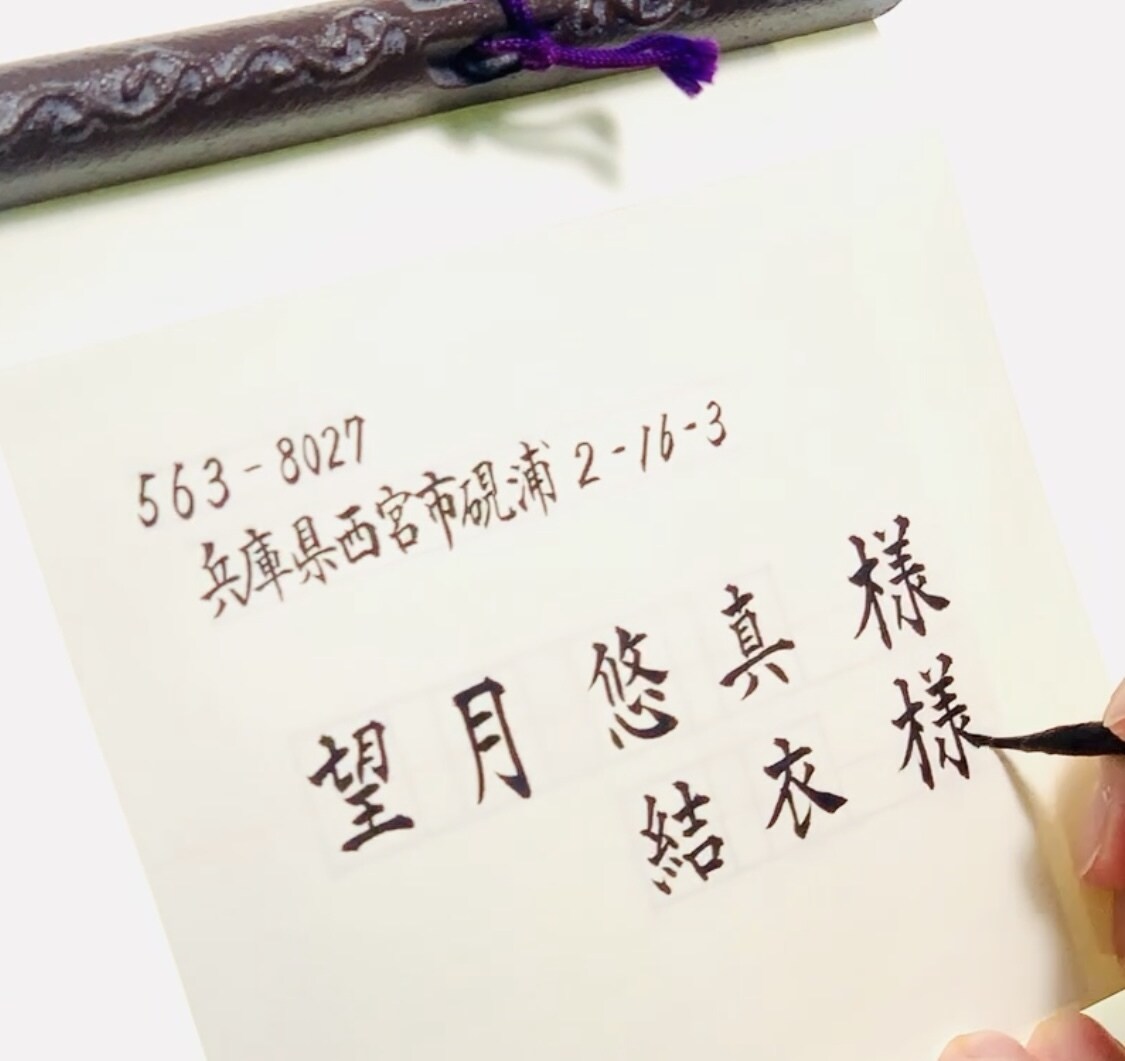 563-8027
兵庫県西宮市硯浦2-16-3
望月悠真様
結衣様